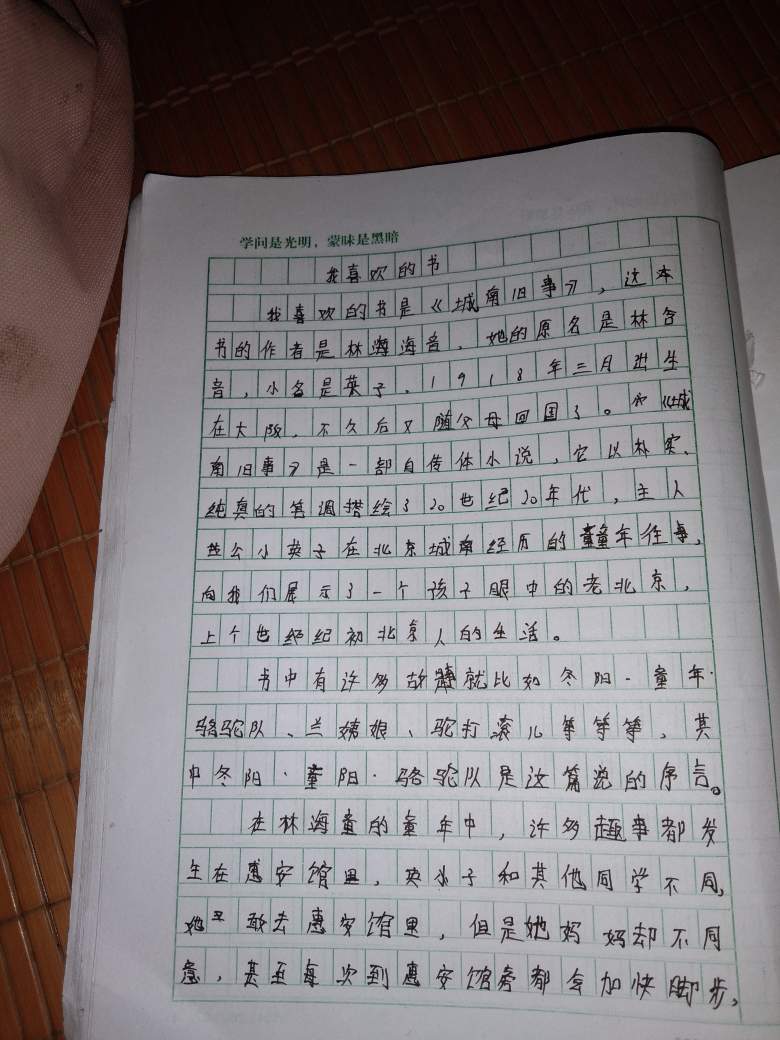 学问是光明，蒙昧是黑暗
我喜欢的书
我喜欢的书是《城南旧事》，这本
书的作者是林海音、她的原名是林含
音，小名是英子、1918年三月出生
在大阪，不久后又随父母回国了。《城
南旧事》是一部自传体小说，它以朴实、
纯真的笔调搭绘了20世纪20年代，主人
公小英子在北京城南经历的童年往事，
向我们展示了一个孩子眼中的老北京，
上个世纪初北京人的生活。
书中有许多故事就比如冬阳·童年·
骆驼队、兰姨娘、驼打滚儿等等等，其
中冬阳·童阳·骆驼队是这篇说的序言。
在林海童的童年中，许多趣事都发
生在惠安馆里，英小子和其他同学不同，
她敢去惠安馆里，但是她妈妈却不同
意，甚至每次到惠安馆旁都会加快脚步，